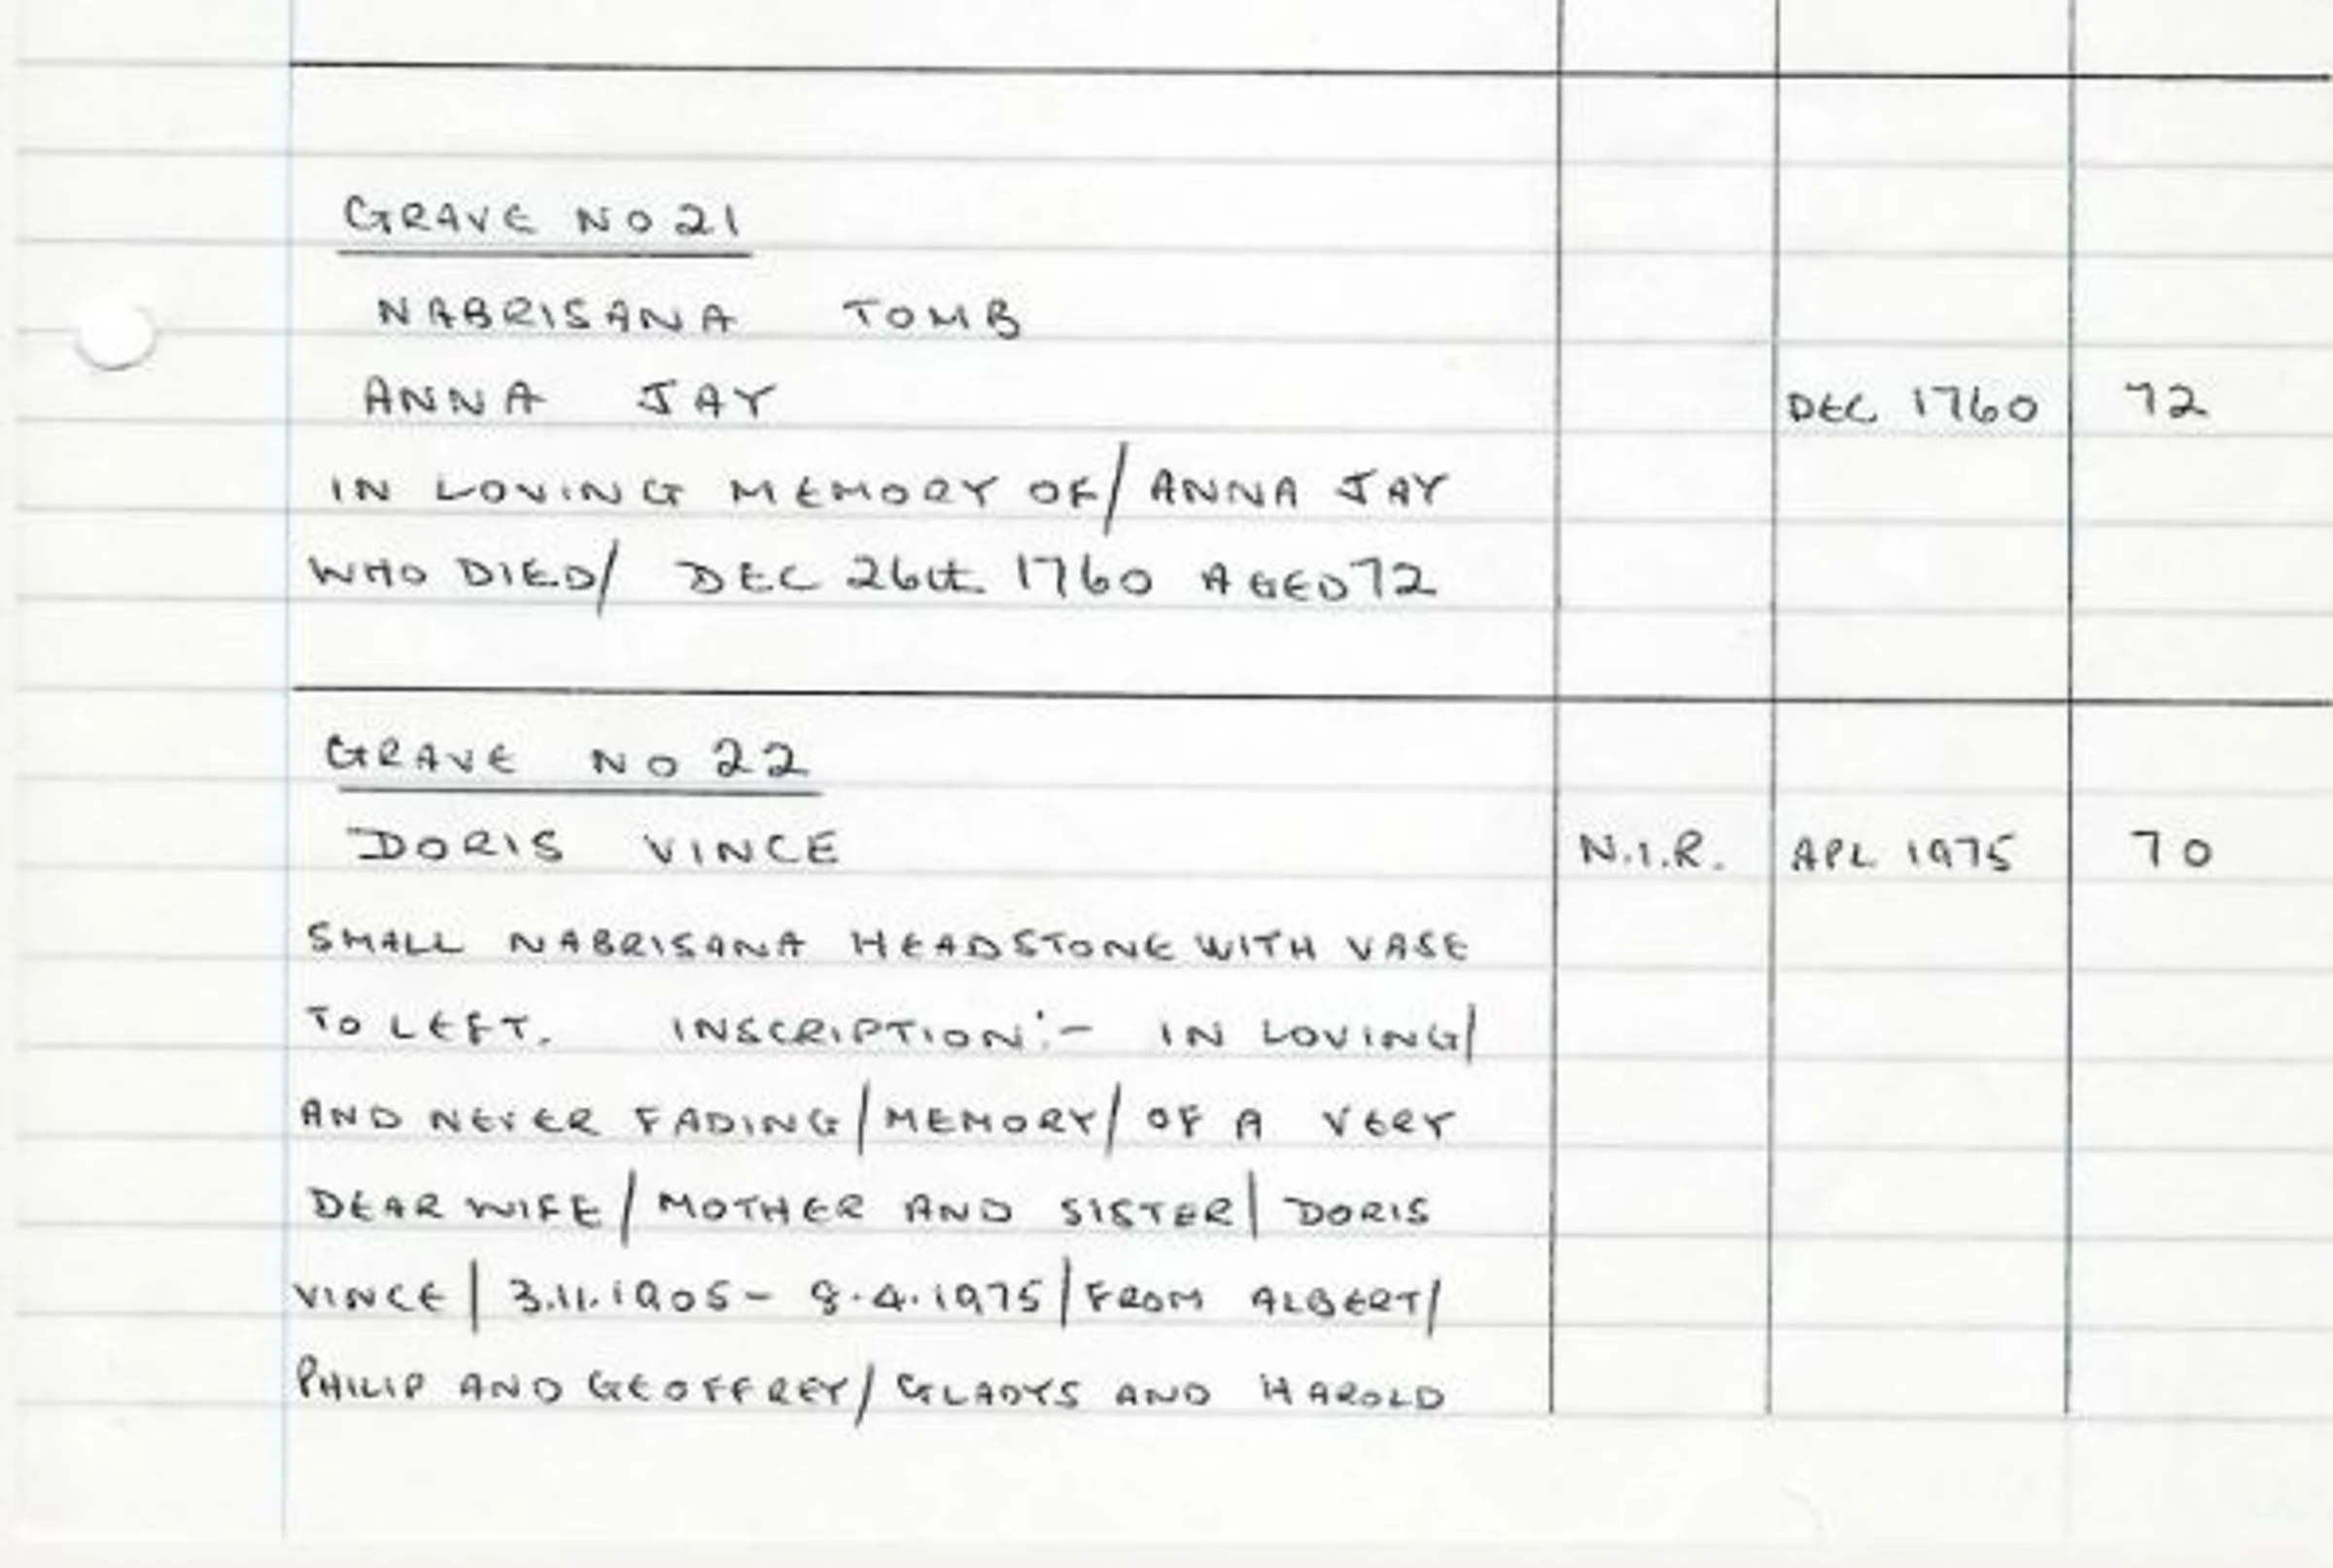 GRAVE NO 21
NABRISANA TOMB
ANNA JAY DEC 1760 72
IN LOVING MEMORY OF/ ANNA JAY
WHO DIED/ DEC 26th 1760 AGED 72
GRAVE NO 22
DORIS VINCE N.I.R. APL 1975 70
SMALL NABRISANA HEADSTONE WITH VASE
TO LEFT. INSCRIPTION:- IN LOVING/
AND NEVER FADING/MEMORY/ OF A VERY
DEAR WIFE/ MOTHER AND SISTER/ DORIS
VINCE/ 3.11.1905- 8.4.1975/FROM ALBERT/
PHILIP AND GEOFFREY/ GLADYS AND HAROLD